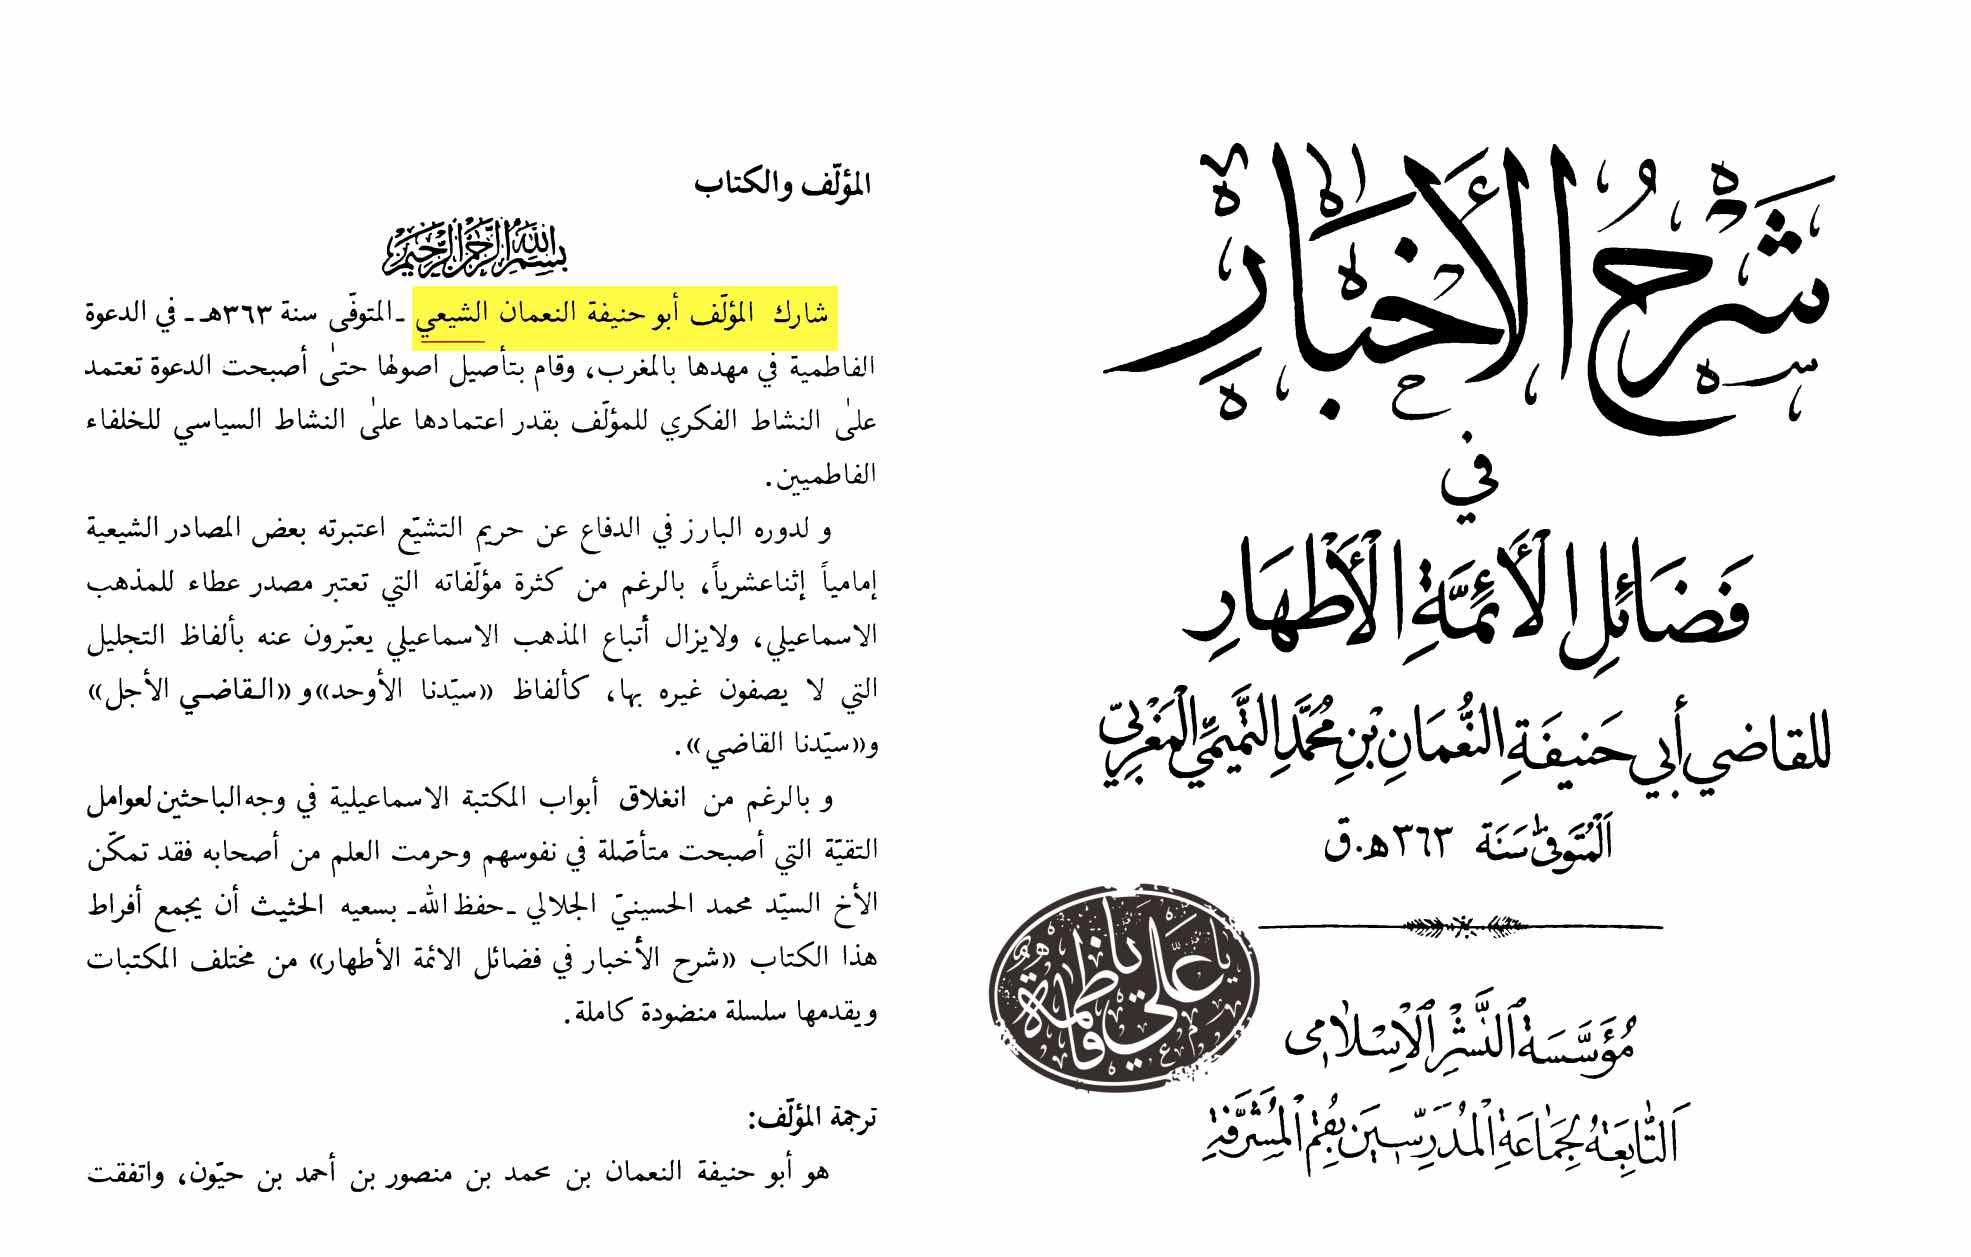 شَرْحُ الأَخْبَارِ
في
فَضَائِلِ الأَئِمَّةِ الأَطْهَارِ
للقاضي أبي حَنيفَةِ النُّعمَانِ بْنِ مُحَمَّدِ التَّمِيمِّي المَغْرِبِيّ
اَلْمُتَوَفّىٰ سَنَة ٣٦٣ هـ.ق
يا علي يا فاطمة
مُؤَسَّسَةُ اَلنَّشْرِ اَلْإِسْلاٰمِي
اَلتّٰابِعَةُ لِجَمٰاعَةِ اَلْمُدَرِّسِينَ بِقُمِ اَلْمُشَرَّفَةِ
المؤلّف والكتاب
بسم الله الرحمن الرحيم
شارك المؤلّف أبو حنيفة النعمان الشيعي ـ المتوفّى سنة ٣٦٣هـ ـ في الدعوة
الفاطمية في مهدها بالمغرب، وقام بتأصيل اصولها حتىٰ أصبحت الدعوة تعتمد
علىٰ النشاط الفكري للمؤلّف بقدر اعتمادها علىٰ النشاط السياسي للخلفاء
الفاطميين.
و لدوره البارز في الدفاع عن حريم التشيّع اعتبرته بعض المصادر الشيعية
إمامياً إثناعشرياً، بالرغم من كثرة مؤلّفاته التي تعتبر مصدر عطاء للمذهب
الاسماعيلي، ولايزال أتباع المذهب الاسماعيلي يعبّرون عنه بألفاظ التجليل
التي لا يصفون غيره بها، كألفاظ «سيّدنا الأوحد» و «القاضي الأجل»
و«سيّدنا القاضي».
و بالرغم من انغلاق أبواب المكتبة الاسماعيلية في وجه الباحثين لعوامل
التقيّة التي أصبحت متأصّلة في نفوسهم وحرمت العلم من أصحابه فقد تمكّن
الأخ السيّد محمد الحسينيّ الجلالي ـ حفظ الله ـ بسعيه الحثيث أن يجمع أفراط
هذا الكتاب «شرح الأخبار في فضائل الائمة الأطهار» من مختلف المكتبات
ويقدمها سلسلة منضودة كاملة.
ترجمة المؤلّف:
هو أبو حنيفة النعمان بن محمد بن منصور بن أحمد بن حيّون، واتفقت